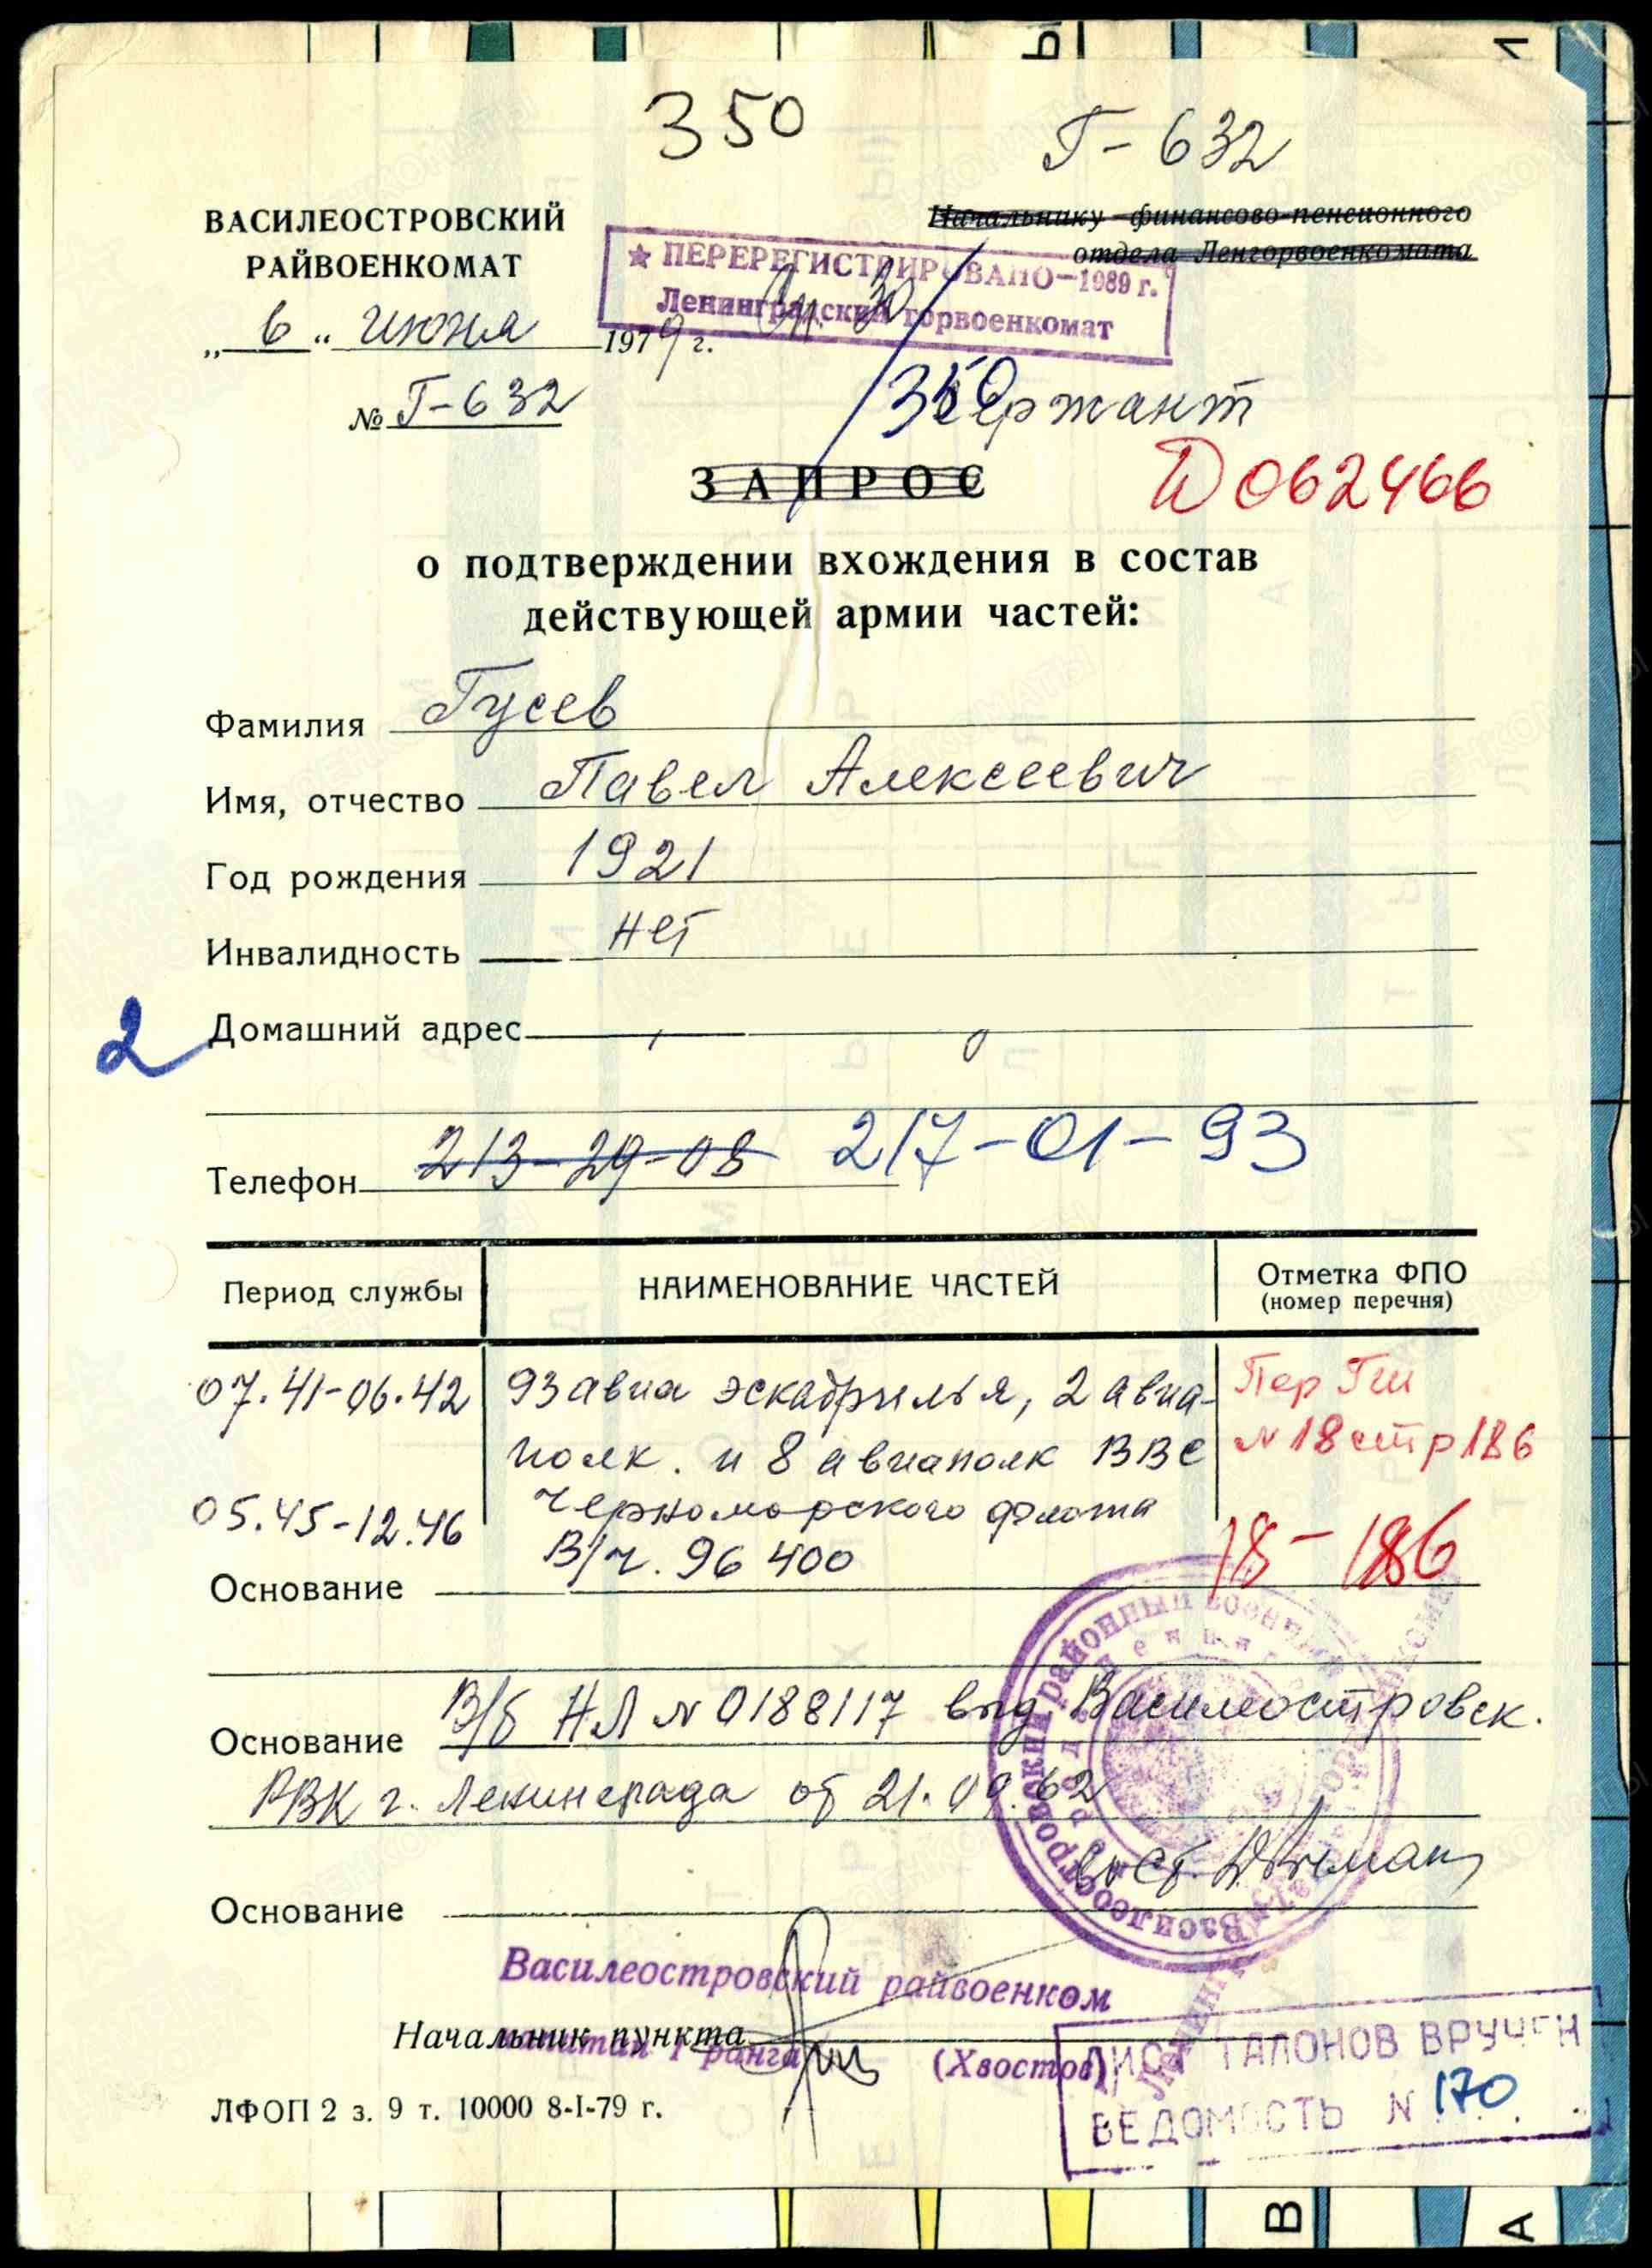 350
Г-632
ВАСИЛЕОСТРОВСКИЙ
РАЙВОЕНКОМАТ
„ 6 “ июня 1979 г.
№ Г-632
Начальнику финансово-пенсионного
отдела Ленгорвоенкомата
★ ПЕРЕРЕГИСТРИРОВАНО—1989 г.
Ленинградский горвоенкомат
350
сержант
ЗАПРОС
062466
о подтверждении вхождения в состав
действующей армии частей:
Фамилия Гусев
Имя, отчество Павел Алексеевич
Год рождения 1921
Инвалидность нет
2
Домашний адрес
Телефон 213-29-08 217-01-93
Период службы НАИМЕНОВАНИЕ ЧАСТЕЙ Отметка ФПО
(номер перечня)
07.41-06.42 93 авиа эскадрилья, 2 авиа- Пер Гш
полк. и 8 авиаполк ВВС N 18 стр 186
05.45-12.46 Черноморского флота
В/ч. 96400 18-186
Основание
Основание В/б НЛ N 0188117 выд Василеостровск.
РВК г. Ленинграда от 21.09.62
Основание
Василеостровский райвоенком
Начальник пункта
капитан 1 ранга (Хвостов)
ЛИСТ ТАЛОНОВ ВРУЧЕН
ВЕДОМОСТЬ N 170
ЛФОП 2 з. 9 т. 10000 8-I-79 г.
В
А